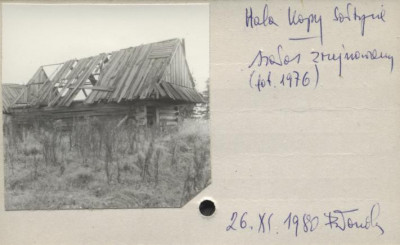 Hala Kopy Sołtysie
szałas zrujnowany
(fot. 1976)
26. XI. 1980